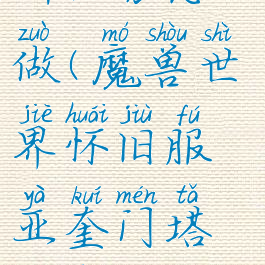 zuò mó shòu shì
做(魔兽世
jiè huái jiù fú
界怀旧服
yà kuí mén tǎ
亚奎门塔